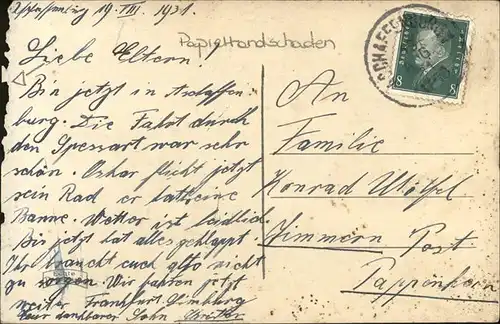 Aschaffenburg 19. VIII. 1931.
Papierrandschaden
Liebe Eltern!
Bin jetzt in Aschaffen-
burg. Die Fahrt durch
den Spessart war sehr
schön. Oskar flickt jetzt
sein Rad er hatte eine
Panne. Wetter ist leidlich.
Bis jetzt hat alles geklappt
Ihr braucht euch also nicht
zu sorgen Wir fahren jetzt
weiter Frankfurt Limburg
Euer dankbarer Sohn
An
Familie
Konrad
Zimmern Post
Pappenheim
ASCHAFFENBURG
DEUTSCHES REICH
8 8